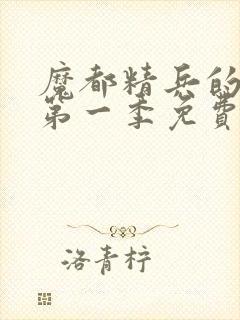 魔都精兵的
第一季免費
洛青柠